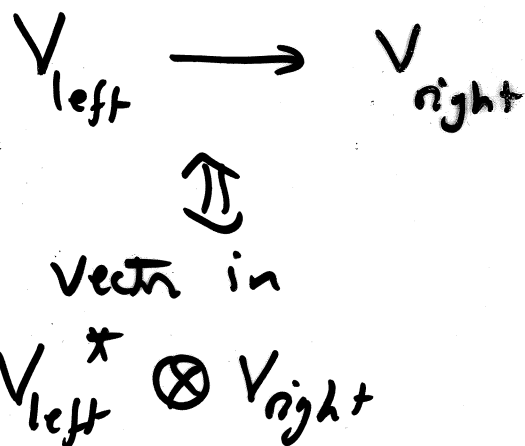 V_left → V_right
⇕
Vector in
V_left* ⊗ V_right